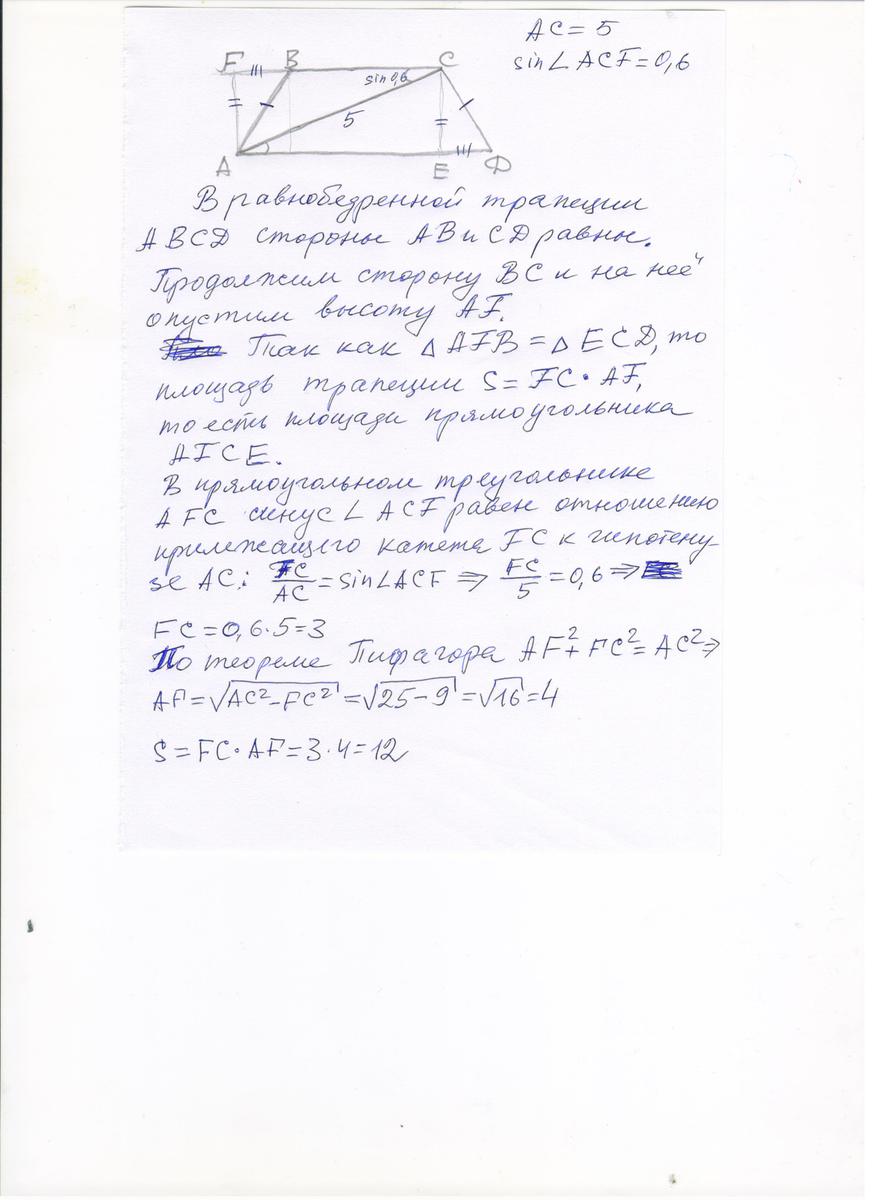 AC = 5
sin∠ACF = 0,6
F B C
sin 0,6
5
A E D
В равнобедренной трапеции
ABCD стороны AB и CD равны.
Продолжим сторону BC и на неё
опустим высоту AF.
Так как △AFB = △ECD, то
площадь трапеции S = FC · AF,
то есть площади прямоугольника
AFCE.
В прямоугольном треугольнике
AFC синус ∠ACF равен отношению
прилежащего катета FC к гипотену-
зе AC: FC/AC = sin∠ACF ⇒ FC/5 = 0,6 ⇒
FC = 0,6·5 = 3
По теореме Пифагора AF² + FC² = AC² ⇒
AF = √AC² – FC² = √25 – 9 = √16 = 4
S = FC · AF = 3 · 4 = 12